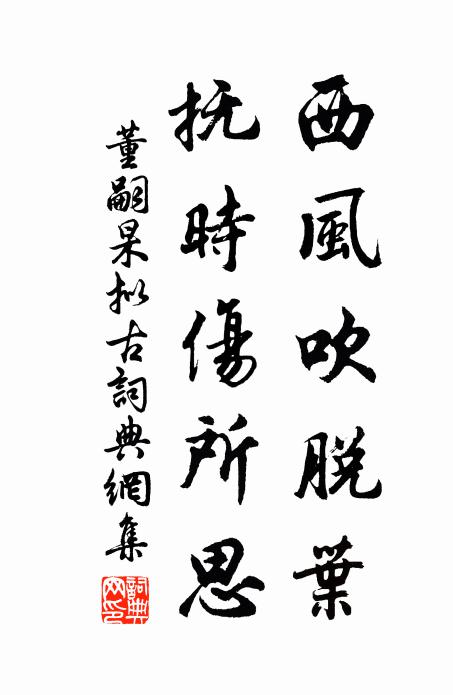 西風吹脱葉
抚時傷所思
董嗣杲拟古詞典網集
詞典網印